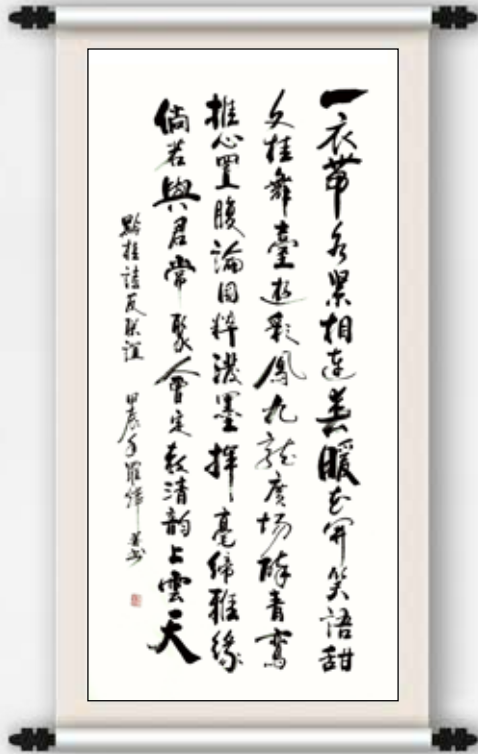 一衣帶水緊相連春暖花開笑語甜
久桂舞臺遊彩鳳九龍廣場醉青鸞
推心置腹論國粹潑墨揮毫締雅緣
倘若與君常聚會定教清韵上雲天
黔桂詩友聯誼 甲辰年羅偉並書